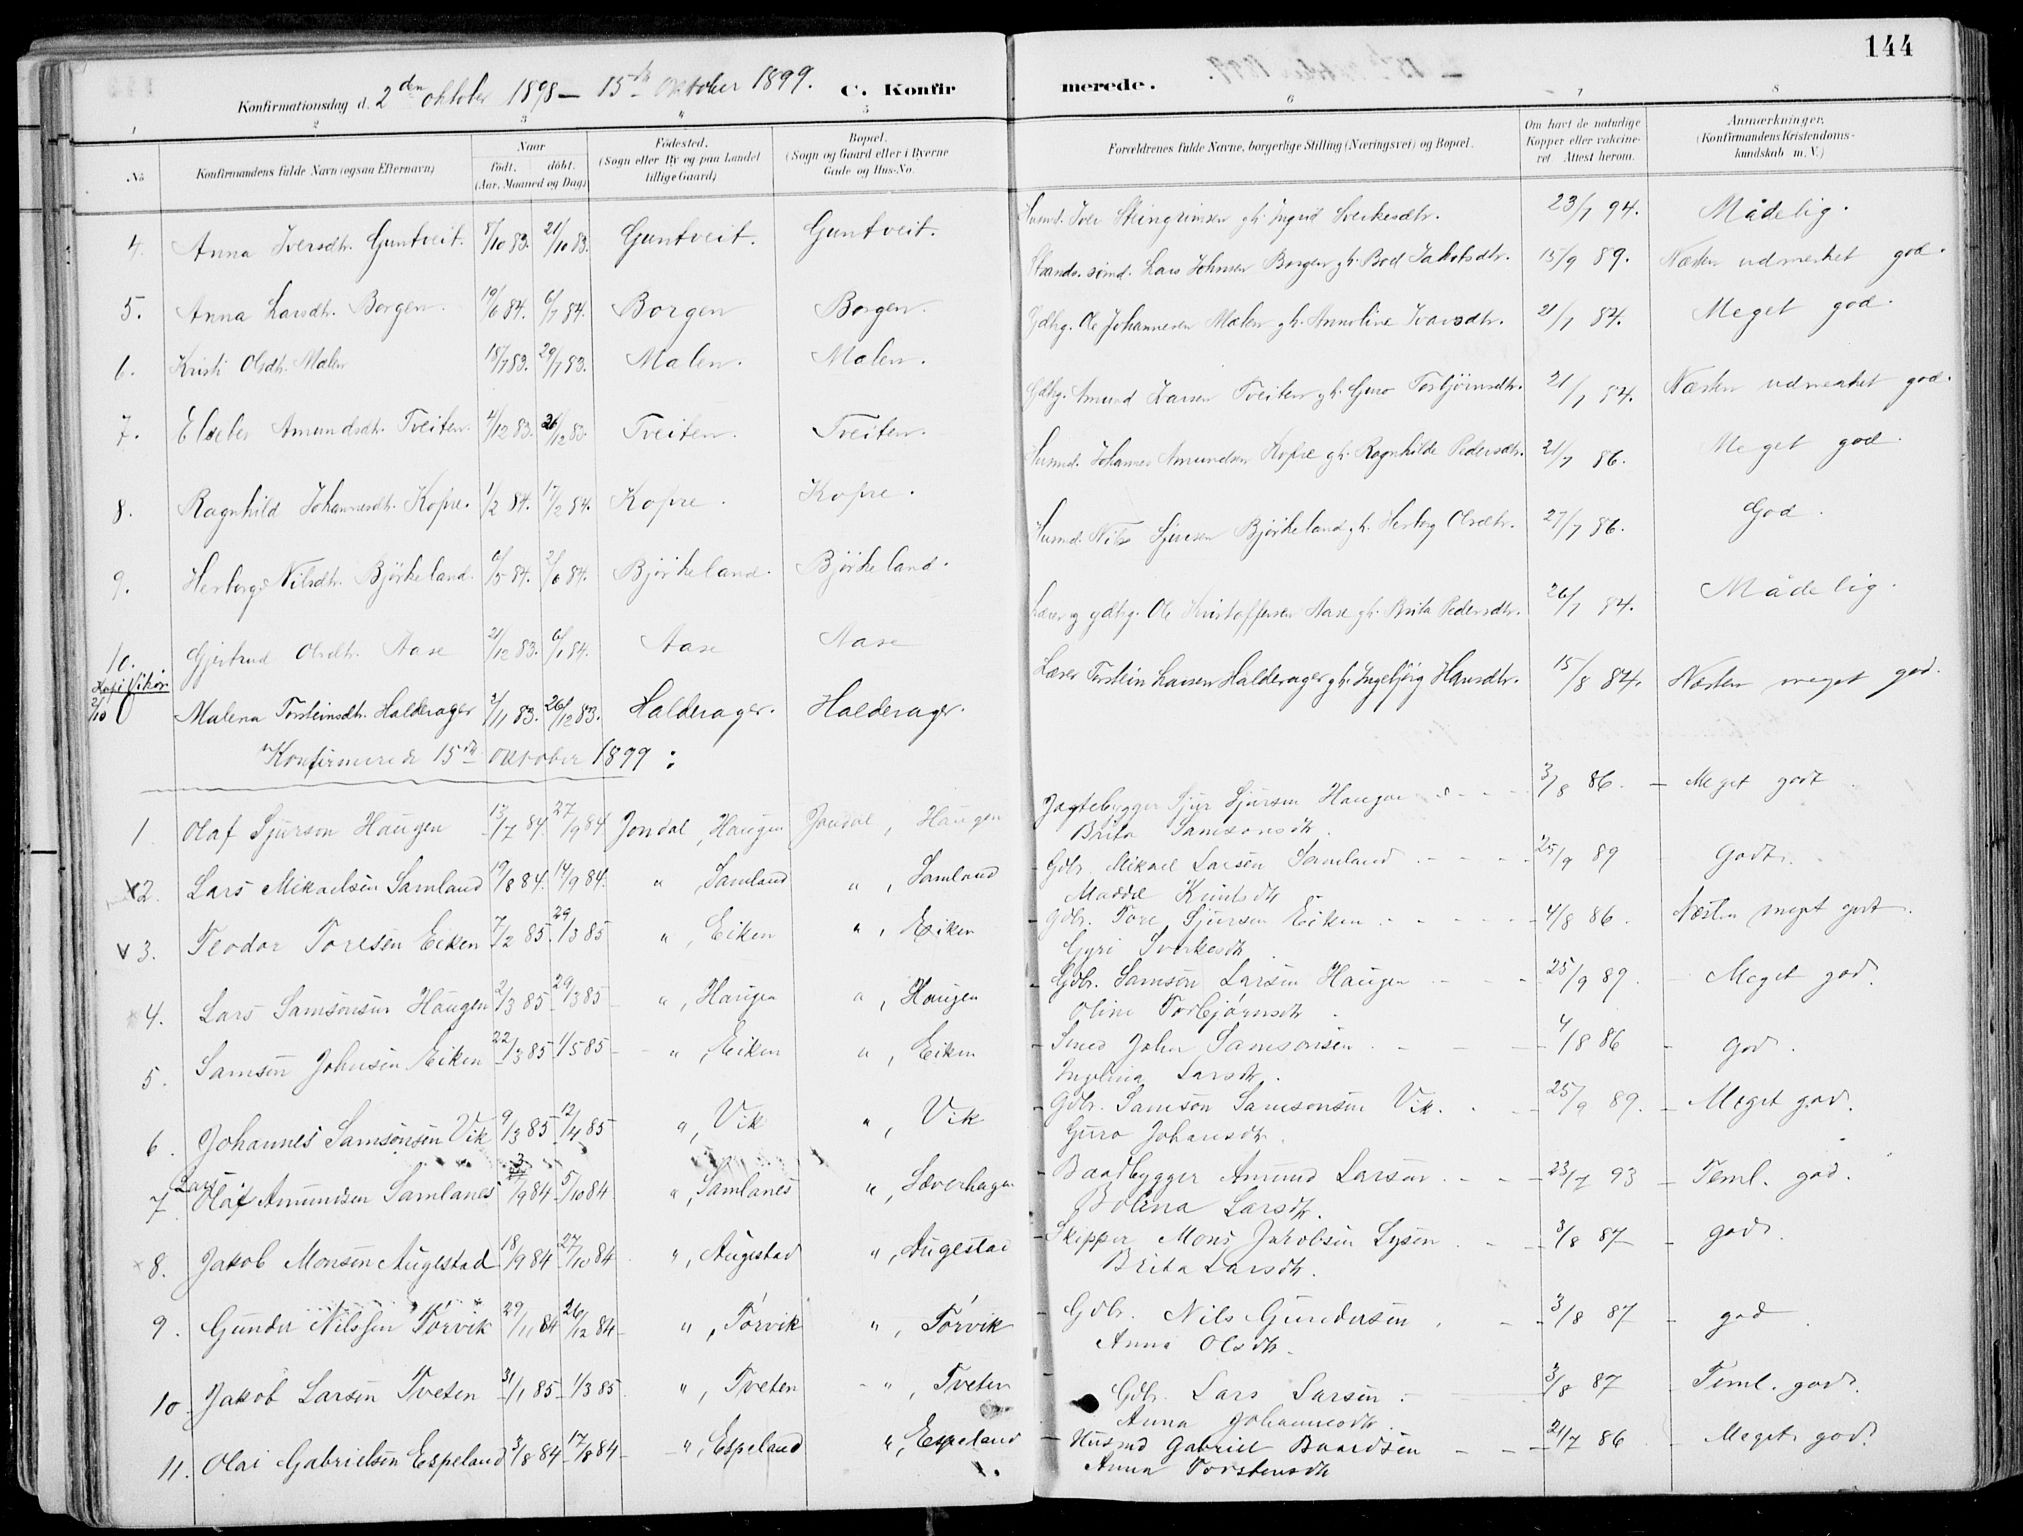 144
Konfirmationsdag d. 2den oktober 1898 – 15de oktober 1899. C. Konfirmerede.
1 2 3 4 5 6 7 8
No Konfirmandens fulde Navn (ogsaa Efternavn) Naar født, døbt. (Aar, Maaned og Dag) Fødested. (Sogn eller By og paa Landet tillige Gaard) Bopæl. (Sogn og Gaard eller i Byerne Gade og Hus-No. Forældrenes fulde Navne, borgerlige Stilling (Næringsvei) og Bopæl. Om havt de naturlige Kopper eller vakcineret. Attest herom. Anmærkninger. (Konfirmandens Kristendomskundskab m. V.)
4. Anna Iversdtr. Guntveit. 8/10 83. 21/10 83. Guntveit. Guntveit. Husmd. Iver Steingrimsen gh. Ingrid Sverkesdtr. 23/7 94. Mådelig.
5. Anna Larsdtr. Borgen. 19/6 84. 6/7 84. Borgen Borgen. Lars Johnsen Borgen gh. Bod Jakobsdtr. 15/9 89. Næsten udmerket god.
6. Kristi Olsdtr. Malen 18/7 83. 29/7 83. Malen. Malen. Gdbrg. Ole Johannesen Malen gh. Annoline Ivarsdtr. 21/7 84. Meget god.
7. Elsebe Amundsdtr. Tveiten. 4/12 83. 26/12 83. Tveiten. Tveiten. Gdbrg. Amund Larsen Tveiten gh. Guro Torbjörnsdtr. 21/7 84. Næsten udmerket god.
8. Ragnhild Johannesdtr. Kopre. 1/2 84. 17/2 84. Kopre. Kopre. Husmd. Johannes Amundsen Kopre gh. Ragnhilde Pedersdtr. 21/7 86. Meget god.
9. Herborg Nilsdtr. Björkeland. 6/5 84. 2/6 84. Björkeland. Björkeland. Husmd. Nils Sjursen Björkeland gh. Herborg Olsdtr. 27/7 86. God.
10. Gjertrud Olsdtr. Aase 21/12 83. 6/1 84. Aase Aase Lærer og gdbrg. Ole Kristoffersen Aase gh. Brita Pedersdtr. 26/7 84. Mådelig.
Kopi Vikör 2/10 Malena Torsteinsdtr. Halderager 3/11 83. 26/12 83. Halderager. Halderager. Lærer Torstein Larsen Halderager gh. Ingebjörg Hansdtr. 15/8 84. Næsten meget god.
Konfirmerede 15de oktober 1899:
1 Olaf Sjurson Haugen 13/7 84 27/9 84 Jondal, Haugen Jondal, Haugen Jagtebygger Sjur Sjursen Haugen 3/8 86. – Meget godt
Brita Samsonsdtr.
x2. Lars Mikaelsen Samland 19/8 84. 14/9 84. " Samland " , Samland Gdbr. Mikael Larsen Samland 25/9 89 Godt.
Maddel Knutsdtr
v 3. Teodor Toresen Eiken 7/2 85. 29/3 85 " , Eiken " , Eiken Gdbr. Tore Sjursen Eiken 4/8 86. Næsten meget godt.
Gyri Sverkesdtr
4. Lars Samsonsen Haugen 2/3 85 29/3 85 " , Haugen " , Haugen Gdbr. Samson Larsen Haugen 25/9 89. – Meget god.
Oline Torbjørnsdtr.
5. Samson Johnsen Eiken 22/3 85 1/5 85 – " , Eiken " , Eiken Smed John Samsonsen 4/8 86 – god.
Ingelina Larsdtr.
6. Johannes Samsonsen Vik 9/3 85 12/4 85 " , Vik " , Vik Gdbr. Samson Samsonsen Vik. 25/9 89. – Meget god.
Guro Johansdtr.
7 Lars Olaf Amundsen Samlanes 3/9 84 5/10 84 " , Samlanes " , Sæverhagen Baadbygger Amund Larsen 23/7 93 – Teml. god.
Bolina Larsdtr.
8. Jakob Monsen Augestad 18/9 84 27/10 84 " , Augestad " , Augestad Skipper Mons Jakobsen Lysen 3/8 87 – god.
Brita Larsdtr.
9. Gunder Nilssen Tørvik 29/11 84 26/12 84 " , Tørvik " , Tørvik Gdbr. Nils Gundersen 3/8 87 – god
Anna Olsdtr.
10 Jakob Larsen Tveten 31/1 85 1/3 85 " , Tveten " , Tveten Gdbr. Lars Larsen 3/8 87 Teml. god.
Anna Johannesdtr.
11. Olai Gabrielsen Espeland 3/8 84 17/8 84 – " , Espeland " , Espeland Husmd Gabriel Baardsen 21/7 86 – Meget god.
Anna Torstensdtr